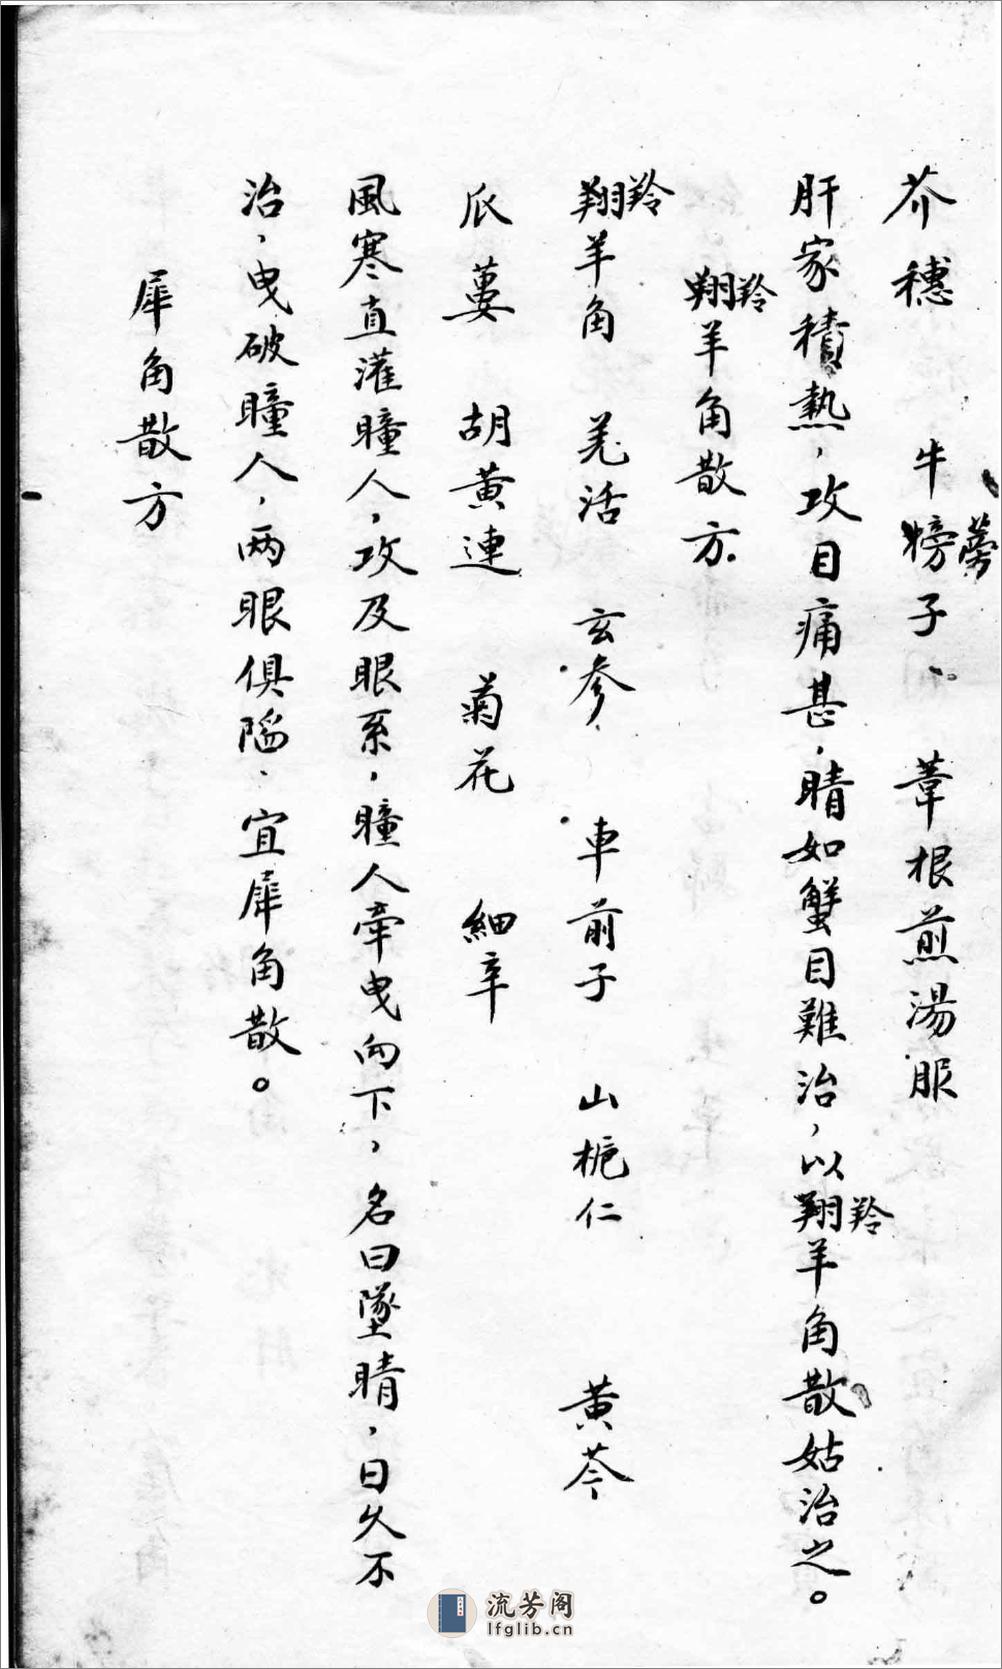 芥穗 牛蒡子 葦根煎湯服
肝家積熱，攻目痛甚，睛如蟹目難治，以羚羊角散姑治之。
羚羊角散方
羚羊角 羌活 玄参 車前子 山梔仁 黄芩
瓜蔞 胡黄連 菊花 細辛
風寒直灌瞳人，攻及眼系，瞳人牽曳向下，名曰墜睛，日久不
治，曳破瞳人，两眼俱陷、宜犀角散。
犀角散方
流芳阁
lfglib.cn